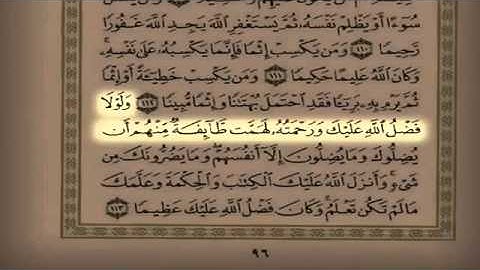 سُوٓءًا أَوۡ يَظۡلِمۡ نَفۡسَهُۥ ثُمَّ يَسۡتَغۡفِرِ ٱللَّهَ يَجِدِ ٱللَّهَ غَفُورٗا
رَّحِيمٗا ١١٠ وَمَن يَكۡسِبۡ إِثۡمٗا فَإِنَّمَا يَكۡسِبُهُۥ عَلَىٰ نَفۡسِهِۦۚ
وَكَانَ ٱللَّهُ عَلِيمًا حَكِيمٗا ١١١ وَمَن يَكۡسِبۡ خَطِيٓـَٔةً أَوۡ إِثۡمٗا
ثُمَّ يَرۡمِ بِهِۦ بَرِيٓـٔٗا فَقَدِ ٱحۡتَمَلَ بُهۡتَٰنٗا وَإِثۡمٗا مُّبِينٗا ١١٢ وَلَوۡلَا
فَضۡلُ ٱللَّهِ عَلَيۡكَ وَرَحۡمَتُهُۥ لَهَمَّت طَّآئِفَةٞ مِّنۡهُمۡ أَن
يُضِلُّوكَ وَمَا يُضِلُّونَ إِلَّآ أَنفُسَهُمۡۖ وَمَا يَضُرُّونَكَ مِن
شَيۡءٖۚ وَأَنزَلَ ٱللَّهُ عَلَيۡكَ ٱلۡكِتَٰبَ وَٱلۡحِكۡمَةَ وَعَلَّمَكَ
مَا لَمۡ تَكُن تَعۡلَمُۚ وَكَانَ فَضۡلُ ٱللَّهِ عَلَيۡكَ عَظِيمٗا ١١٣
٩٦